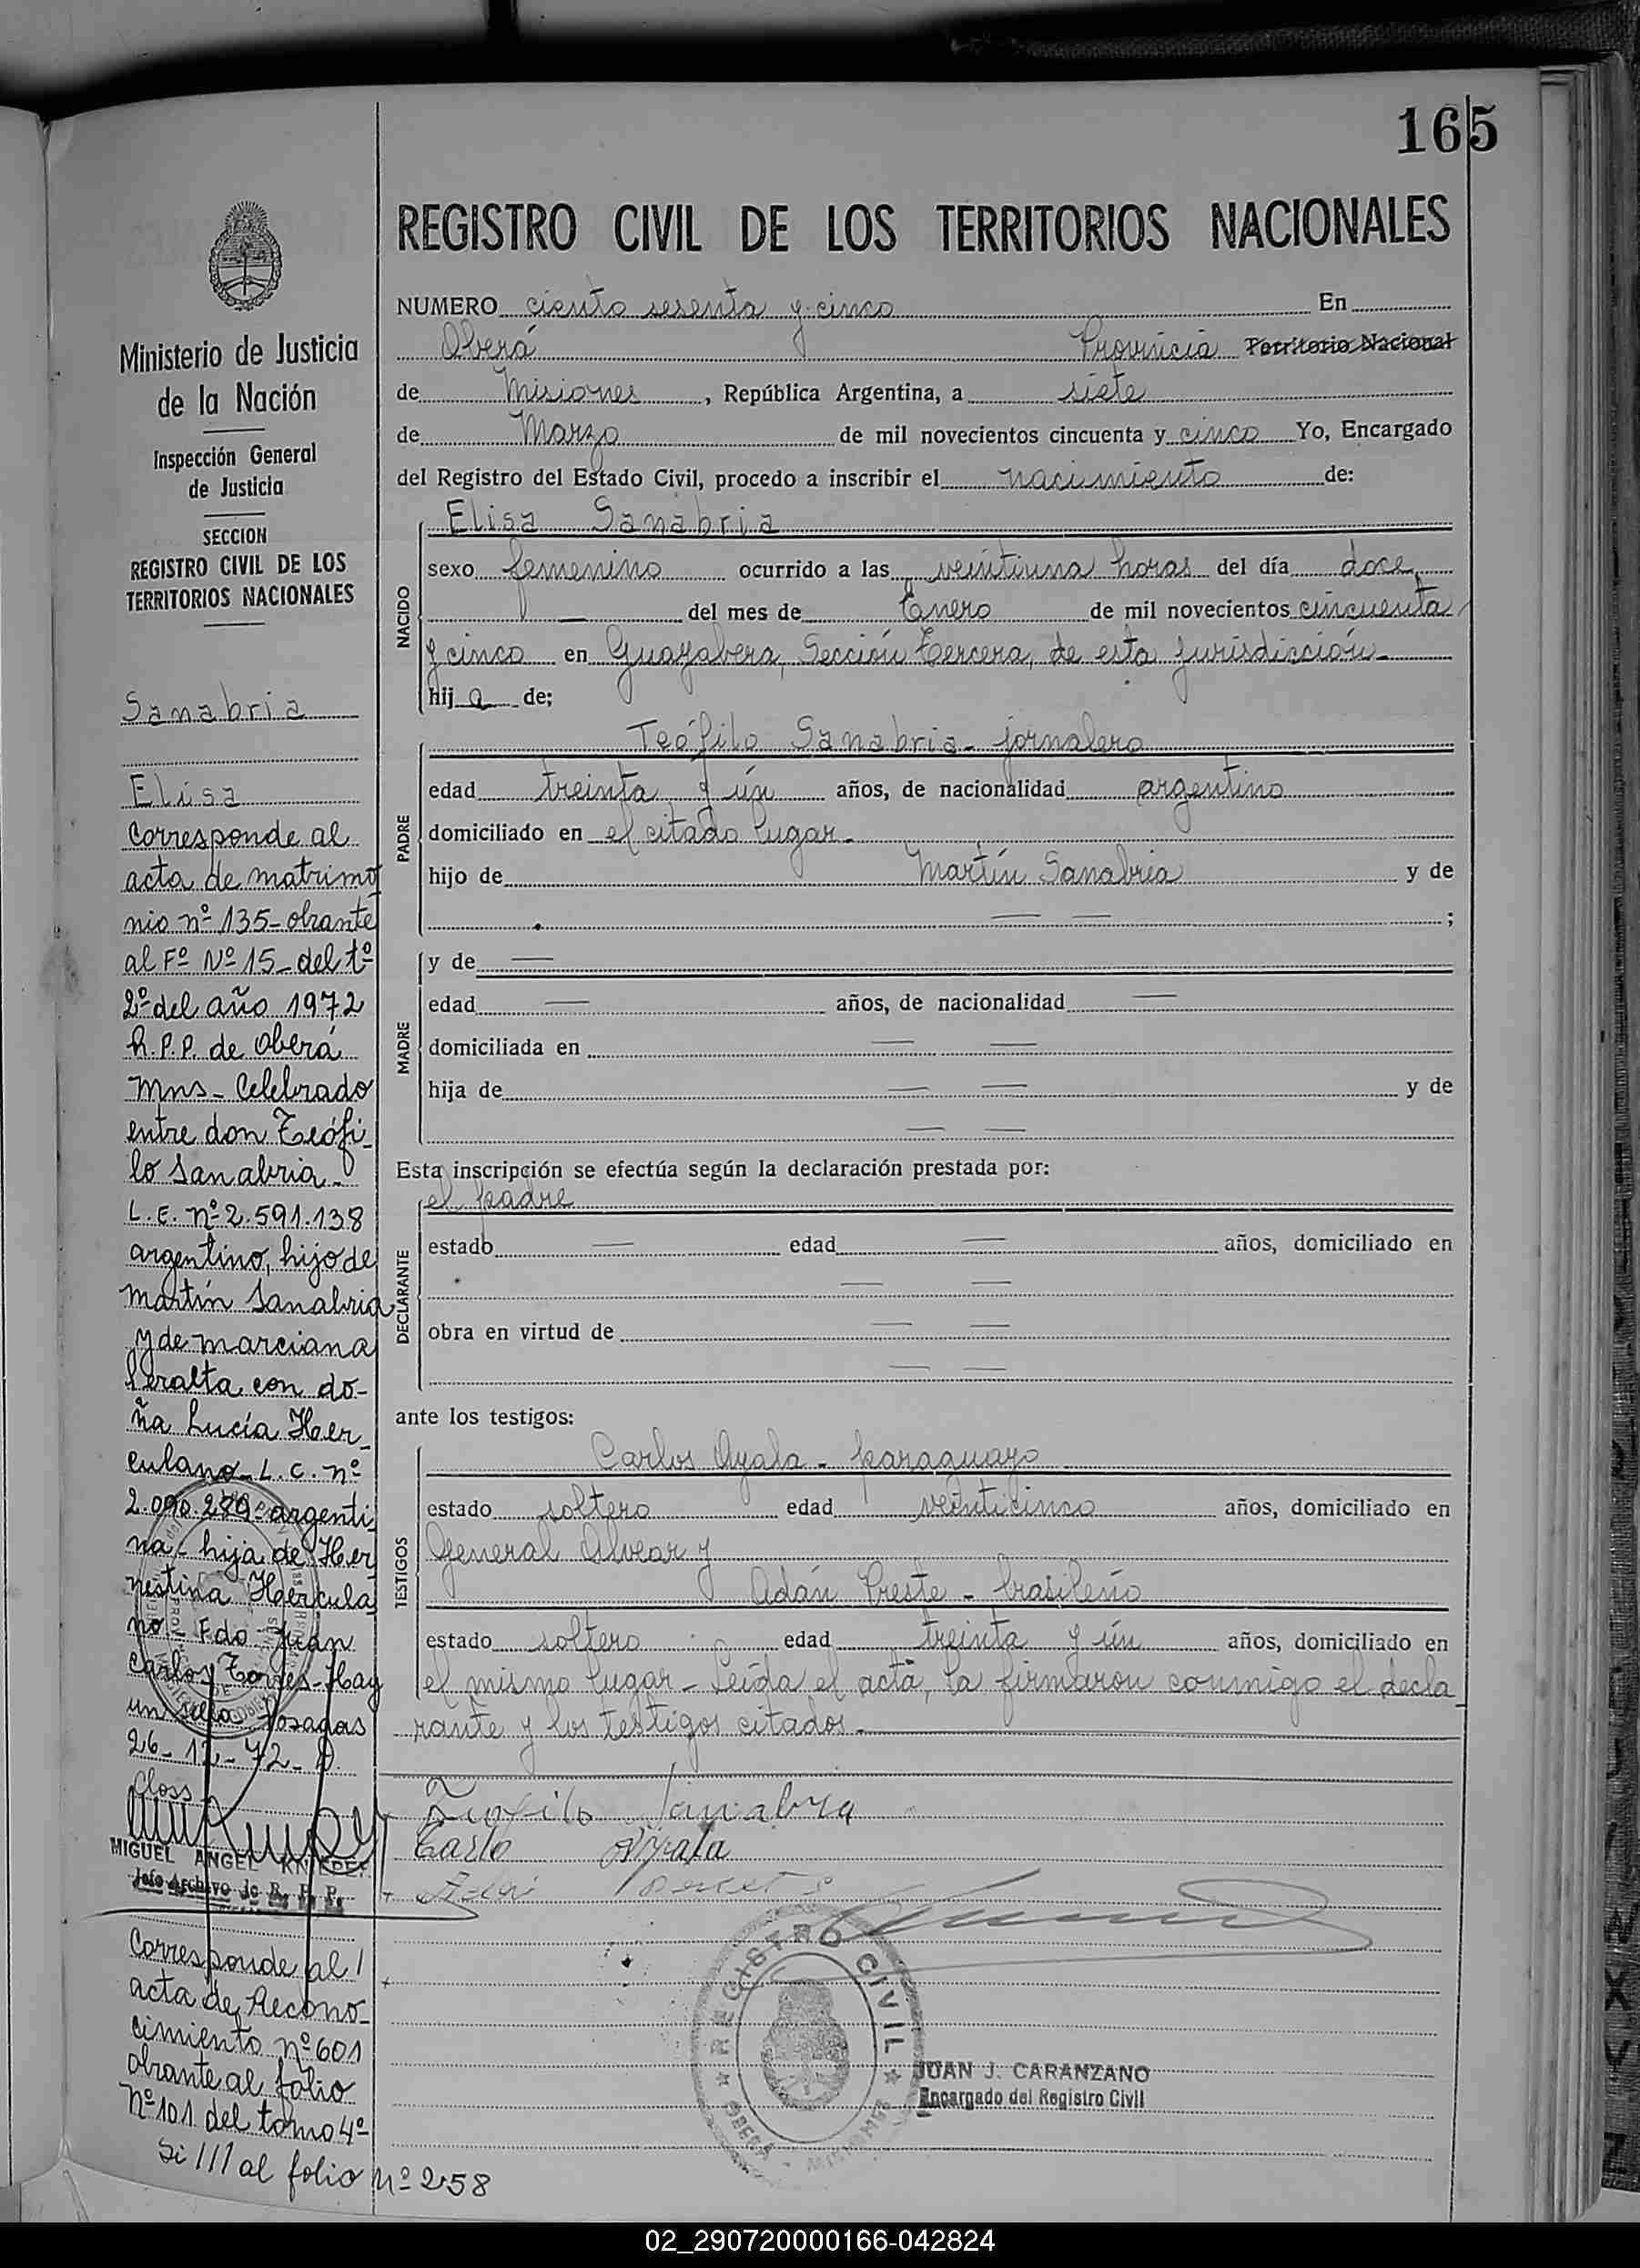 165
REGISTRO CIVIL DE LOS TERRITORIOS NACIONALES
NUMERO ciento sesenta y cinco En
Oberá Provincia Territorio Nacional
de Misiones, República Argentina, a siete
de Marzo de mil novecientos cincuenta y cinco Yo, Encargado
del Registro del Estado Civil, procedo a inscribir el nacimiento de:
NACIDO
Elisa Sanabria
sexo femenino ocurrido a las veintiuna horas del día doce
— del mes de Enero de mil novecientos cincuenta
y cinco en Guayabera, Sección Tercera, de esta jurisdicción-
hij a de;
PADRE
Teófilo Sanabria - jornalero
edad treinta y ún años, de nacionalidad argentino
domiciliado en el citado lugar-
hijo de Martín Sanabria y de
— — ;
MADRE
y de —
edad — años, de nacionalidad —
domiciliada en — —
hija de — — y de
— —
Esta inscripción se efectúa según la declaración prestada por:
DECLARANTE
el padre
estado — edad — años, domiciliado en
— —
obra en virtud de — —
— —
ante los testigos:
TESTIGOS
Carlos Ayala - paraguayo
estado soltero edad veinticinco años, domiciliado en
General Alvear y
Adán Preste - brasileño
estado soltero edad treinta y ún años, domiciliado en
el mismo lugar - Leída el acta, la firmaron conmigo el decla
rante y los testigos citados-
Teofilo Sanabria
Carlo Ayala
REGISTRO CIVIL
OBERA - MISIONES
JUAN J. CARANZANO
Encargado del Registro Civil
Ministerio de Justicia
de la Nación
Inspección General
de Justicia
SECCION
REGISTRO CIVIL DE LOS
TERRITORIOS NACIONALES
Sanabria
Elisa
Corresponde al
acta de matrimo
nio nº 135- obrante
al Fº Nº 15- del tº
2º del año 1972
R.P.P. de Oberá
Mns- Celebrado
entre don Teófi-
lo Sanabria-
L.E. nº 2.591.138
argentino, hijo de
Martín Sanabria
y de Marciana
Peralta con do-
ña Lucía Her-
culano- L.C. nº
2.090.289- argenti
na- hija de Her
nestina Hercula
no- Fdo- Juan
Carlos Torres- Hay
un sello Posadas
26-12-72-
Closs
MIGUEL ANGEL
Jefe Archivo de R. P. P.
Corresponde al
acta de Recono-
cimiento nº 601
obrante al folio
Nº 101 del tomo 4º
Si /// al folio Nº 258
02_290720000166-042824